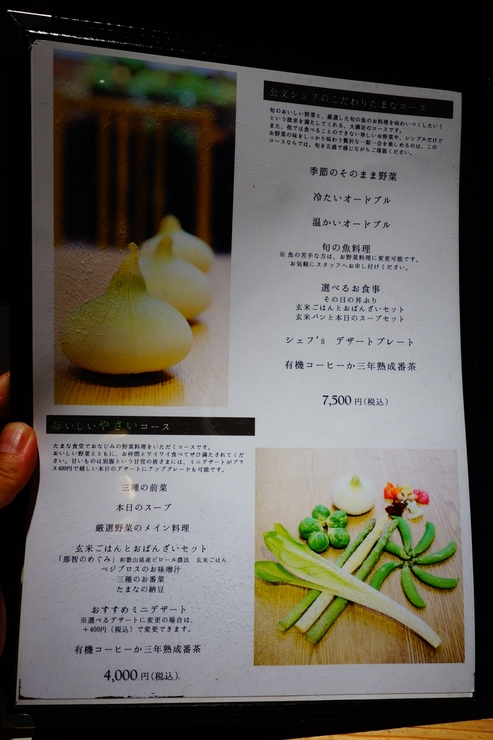 公文シェフのこだわりたまなコース
旬のおいしい野菜と、厳選した旬の魚のお料理を味わいつくしたい！
という欲求を満たしてくれる、大満足のコースです。
また、他では食べることのできない珍しいお野菜や、シンプルだけど
お野菜の味をしっかり味わう贅沢な一期一会を楽しめるのは、この
コースならでは。旬を五感で感じながらご堪能ください。
季節のそのまま野菜
冷たいオードブル
温かいオードブル
旬の魚料理
※ 魚の苦手な方は、お野菜料理に変更可能です。
お気軽にスタッフへお申し付けください。
選べるお食事
その日の丼ぶり
玄米ごはんとおばんざいセット
玄米パンと本日のスープセット
シェフ's デザートプレート
有機コーヒーか三年熟成番茶
7,500 円（税込）
おいしいやさいコース
たまな食堂でおなじみの野菜料理をいただくコースです。
おいしい野菜とともに、お仲間とワイワイ食べてぜひ満たされてくだ
さい。甘いものは別腹という甘党の皆さまには、ミニデザートがプラ
ス400円で嬉しい本日のデザートにアップグレードも可能です。
三種の前菜
本日のスープ
厳選野菜のメイン料理
玄米ごはんとおばんざいセット
「那智のめぐみ」和歌山県産ピロール農法 玄米ごはん
ベジブロスのお味噌汁
三種のお番菜
たまなの納豆
おすすめミニデザート
※選べるデザートに変更の場合は、
＋400円（税込）で変更できます。
有機コーヒーか三年熟成番茶
4,000 円（税込）